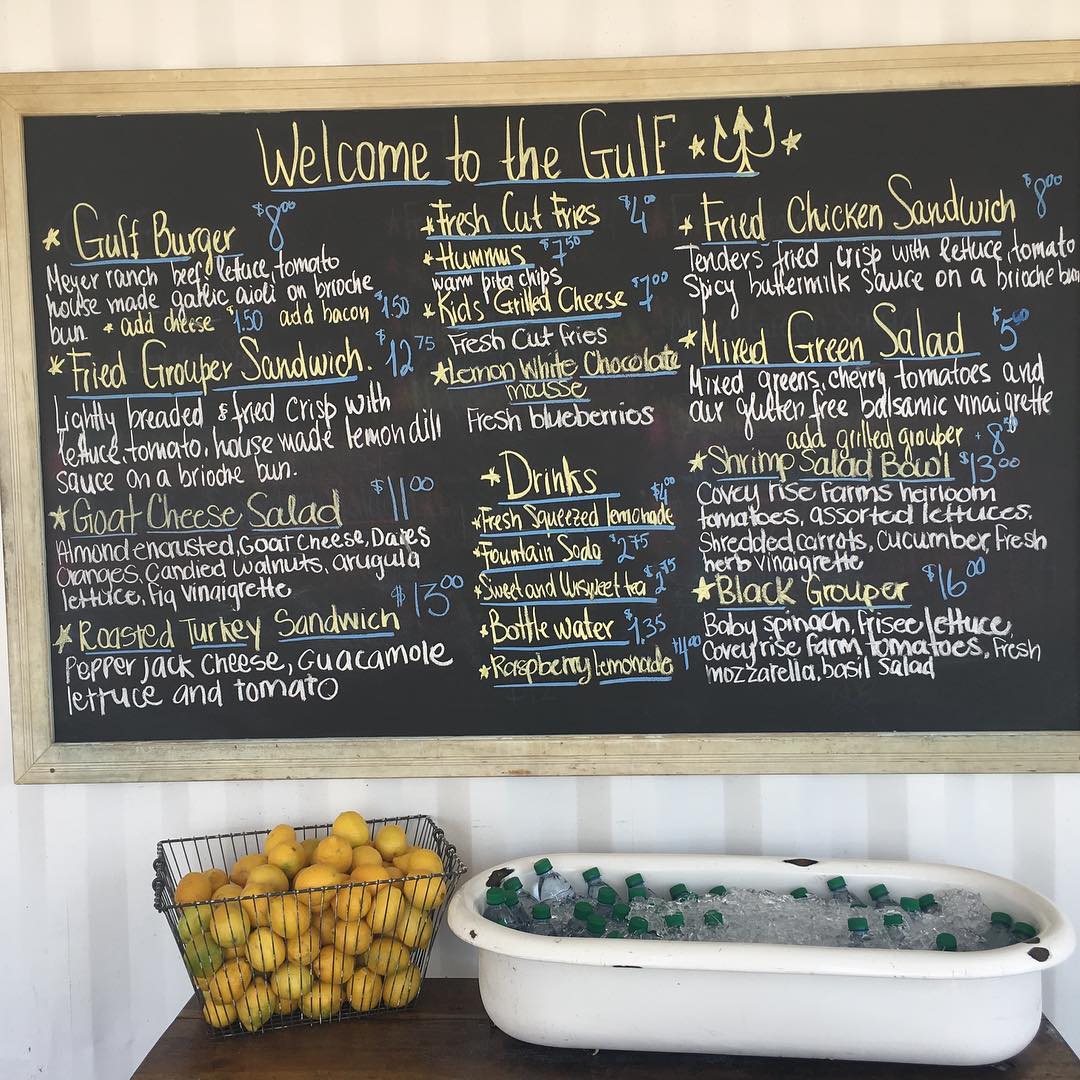 Welcome to the Gulf
Gulf Burger $8.00
Meyer ranch beef, lettuce, tomato
house made garlic aioli on brioche
bun * add cheese $1.50 add bacon $1.50
Fried Grouper Sandwich. $12.75
Lightly breaded & fried crisp with
lettuce, tomato, house made lemon dill
sauce on a brioche bun.
Goat Cheese Salad $11.00
Almond encrusted, Goat Cheese, Dates
Oranges, Candied walnuts, arugula
lettuce, fig vinaigrette
Roasted Turkey Sandwich $13.00
Pepper jack cheese, Guacamole
lettuce and tomato
Fresh Cut Fries $4.00
Hummus $7.50
warm pita chips
Kid's Grilled Cheese $7.00
Fresh Cut fries
Lemon White Chocolate
mousse
Fresh blueberries
Drinks
Fresh Squeezed lemonade $4.00
Fountain Soda $2.75
Sweet and Unsweet tea
Bottle water $1.35
Raspberry lemonade $4.00
Fried Chicken Sandwich $8.00
Tenders fried crisp with lettuce, tomato
Spicy buttermilk sauce on a brioche bun
Mixed Green Salad
Mixed greens, cherry tomatoes and
our gluten free balsamic vinaigrette
add grilled grouper
Shrimp Salad Bowl $13.00
Covey rise farms heirloom
tomatoes, assorted lettuces,
Shredded carrots, cucumber, Fresh
herb vinaigrette
Black Grouper $16.00
Baby spinach, frisee lettuce,
Covey rise farm tomatoes, Fresh
mozzarella, basil salad